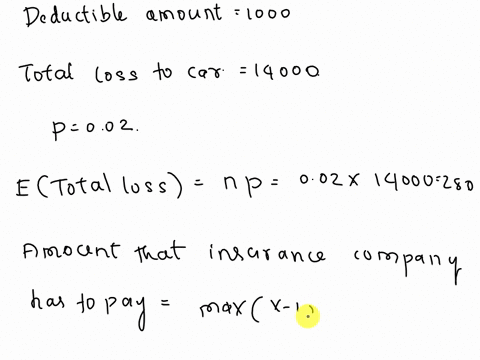 Deductible amount = 1000
Total loss to car = 14000
p = 0.02.
E (Total loss) = np = 0.02 x 14000 = 280
Amount that insurance company
has to pay = max(x-1